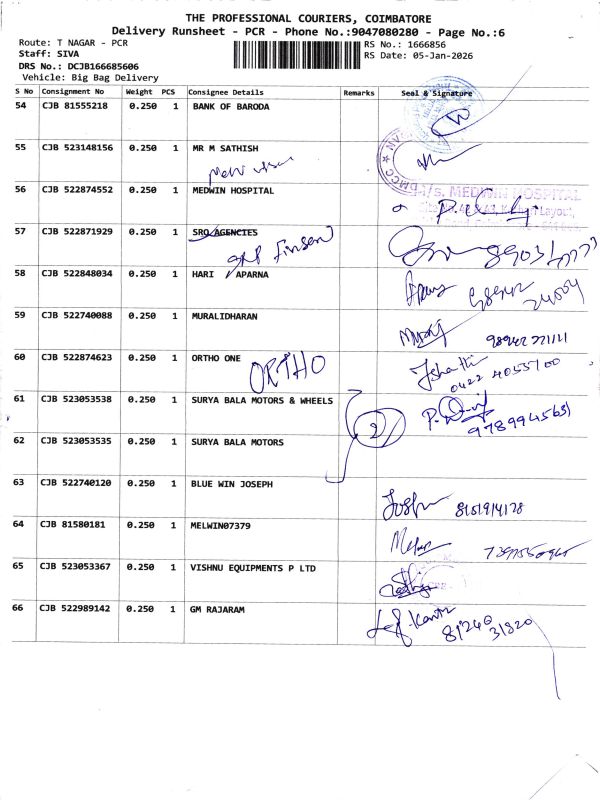 THE PROFESSIONAL COURIERS, COIMBATORE
Delivery Runsheet - PCR - Phone No.:9047080280 - Page No.:6
Route: T NAGAR - PCR
Staff: SIVA
DRS No.: DCJB166685606
Vehicle: Big Bag Delivery
RS No.: 1666856
RS Date: 05-Jan-2026
S No Consignment No Weight PCS Consignee Details Remarks Seal & Signature
54 CJB 81555218 0.250 1 BANK OF BARODA
55 CJB 523148156 0.250 1 MR M SATHISH
56 CJB 522874552 0.250 1 MEDWIN HOSPITAL
M/s. MEDWIN HOSPITAL
57 CJB 522871929 0.250 1 SRO AGENCIES
58 CJB 522848034 0.250 1 HARI APARNA
59 CJB 522740088 0.250 1 MURALIDHARAN
60 CJB 522874623 0.250 1 ORTHO ONE
ORTHO
0422 4055700
61 CJB 523053538 0.250 1 SURYA BALA MOTORS & WHEELS
2
9789945631
62 CJB 523053535 0.250 1 SURYA BALA MOTORS
63 CJB 522740120 0.250 1 BLUE WIN JOSEPH
64 CJB 81580181 0.250 1 MELWIN07379
65 CJB 523053367 0.250 1 VISHNU EQUIPMENTS P LTD
66 CJB 522989142 0.250 1 GM RAJARAM
81240
31820